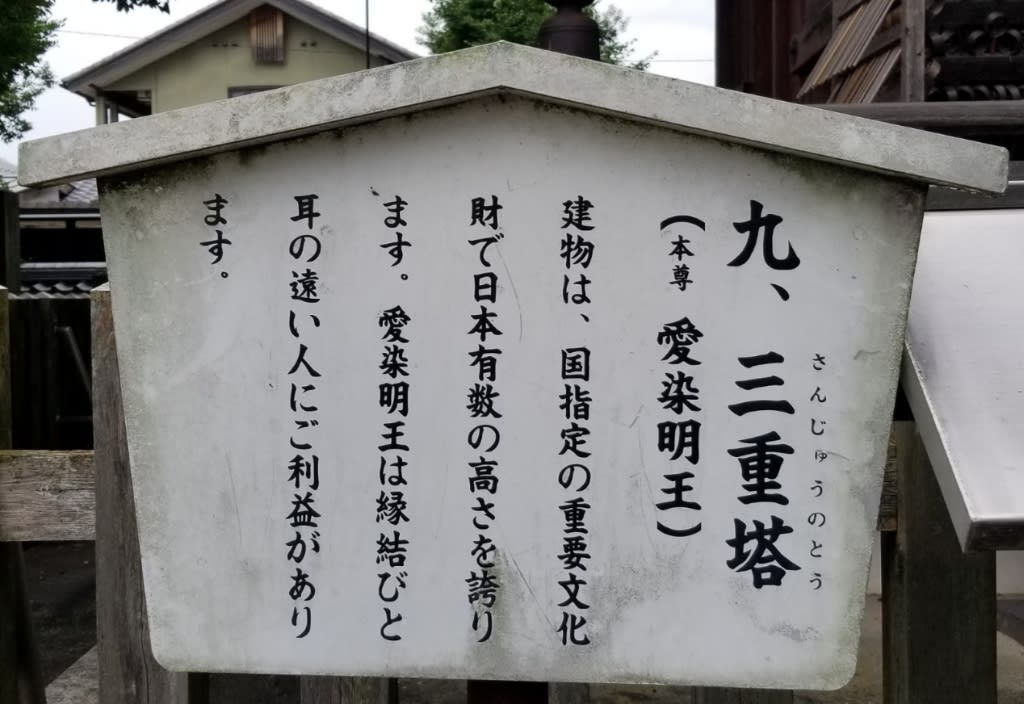 九、三重塔
さんじゅうのとう
(本尊 愛染明王)
建物は、国指定の重要文化
財で日本有数の高さを誇り
ます。愛染明王は縁結びと
耳の遠い人にご利益があり
ます。